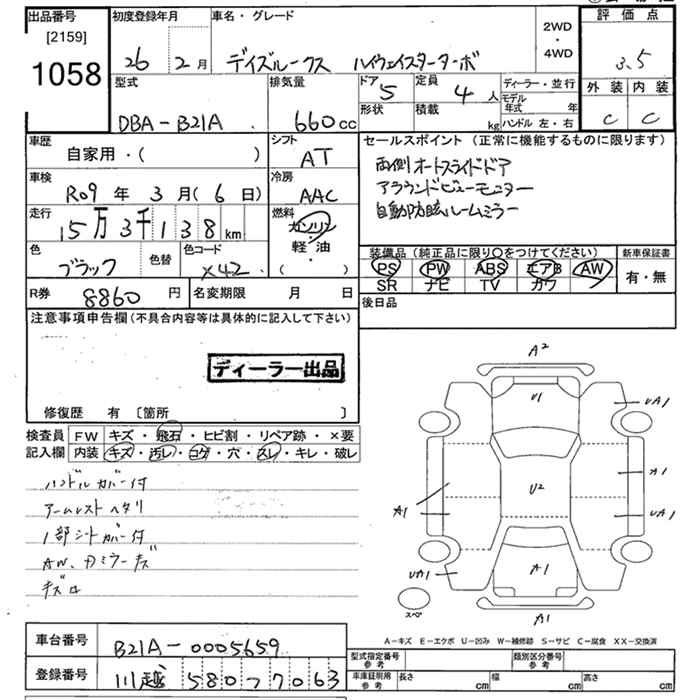 出品番号
[2159]
1058
初度登録年月
26 2月
車名・グレード
デイズルークス ハイウェイスターターボ
2WD
・
4WD
評価点
3.5
外装 内装
C C
型式
DBA-B21A
排気量
660cc
ドア 5
定員 4人
ディーラー・並行
形状
積載 kg
モデル年式 年
ハンドル 左・右
車歴
自家用・( )
シフト
AT
車検
R09年 3月(6日)
冷房
AAC
走行
15万3千138km
燃料
ガソリン
軽・油
・
( )
色
ブラック
色替
色コード
X42
R券 8860円
名変期限 月 日
セールスポイント (正常に機能するものに限ります)
両側オートスライドドア
アラウンドビューモニター
自動防眩ルームミラー
装備品 (純正品に限り○をつけてください)
新車保証書
PS PW ABS エアB AW
有・無
SR ナビ TV カワ
後日品
注意事項申告欄(不具合内容等は具体的に記入して下さい)
ディーラー出品
修復歴 有 〔箇所 〕
検査員
記入欄
FW キズ・飛石・ヒビ割・リペア跡・×要
内装 キズ・汚レ・コゲ・穴・スレ・キレ・破レ
ハンドルカバー付
アームレストヘタリ
1部シートカバー付
AW、ドアミラーキズ
A2
U1
UA1
A1
U2
A1
UA1
UA1
A1
A1
スペア
A-キズ E-エクボ U-凹み W-補修跡 S-サビ C-腐食 XX-交換済
車台番号 B21A-0005659
登録番号 川越 580 ツ 7063
型式指定番号
参考
類別区分番号
参考
車庫証明用
参考
長さ cm
幅 cm
高さ cm